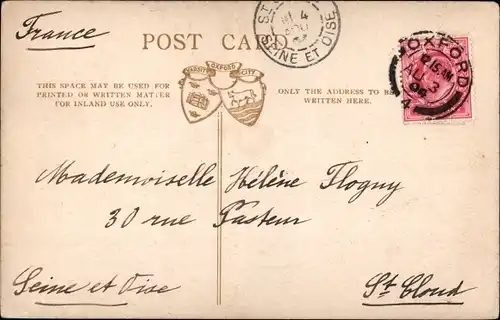 France
POST CARD
THIS SPACE MAY BE USED FOR
PRINTED OR WRITTEN MATTER
FOR INLAND USE ONLY.
VARSITY OXFORD CITY
ONLY THE ADDRESS TO BE
WRITTEN HERE.
ST
4
SEINE ET OISE
OXFORD
Mademoiselle Hélène Flogny
30 rue Pasteur
Seine et Oise
St Cloud